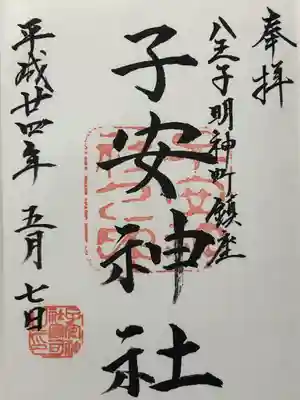 奉拝
八王子明神町鎮座
子安神社
平成廿四年 五月 七日